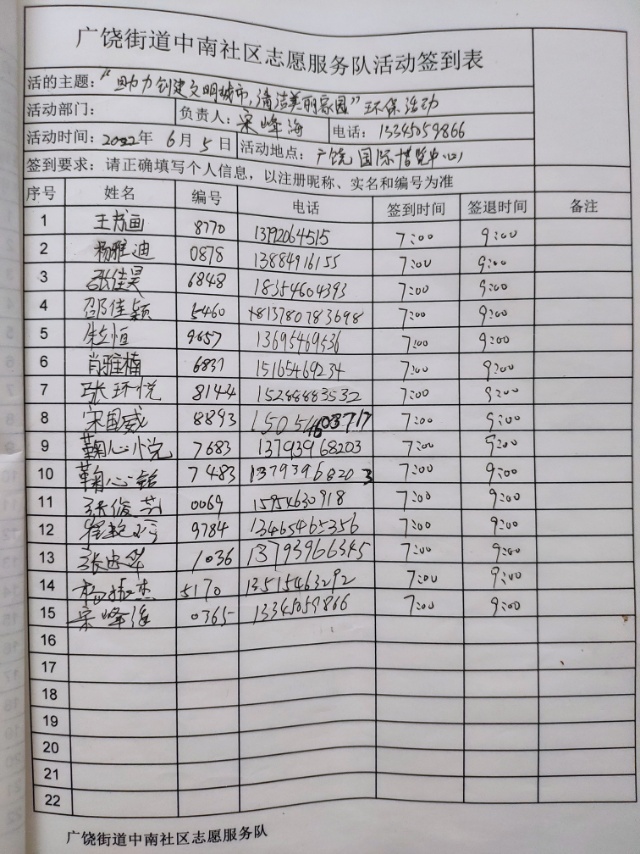 广饶街道中南社区志愿服务队活动签到表
活的主题:“助力创建文明城市,清洁美丽家园”环保活动
活动部门: 负责人:宋峰海 电话:13345059866
活动时间:2022年6月5日 活动地点:广饶国际博览中心
签到要求:请正确填写个人信息,以注册昵称、实名和编号为准
序号 姓名 编号 电话 签到时间 签退时间 备注
1 8770 13792064515 7:00 9:00
2 杨雅迪 0878 13884916155 7:00 9:00
3 张佳昊 6848 18354604393 7:00 9:00
4 邵佳颖 5460 +813780783698 7:00 9:00
5 9657 13695469536 7:00 9:00
6 肖雅楠 6837 15165469234 7:00 9:00
7 张环悦 8144 15288883532 7:00 9:00
8 宋国威 8893 7:00 9:00
9 鞠心悦 7683 13793968203 7:00 9:00
10 鞠心 7483 13793968203 7:00 9:00
11 张俊 0069 15954630918 7:00 9:00
12 9784 13465465356 7:00 9:00
13 张 1036 13793966345 7:00 9:00
14 5170 13515463292 7:00 9:00
15 宋峰海 0365 13345059866 7:00 9:00
16
17
18
19
20
21
22
广饶街道中南社区志愿服务队